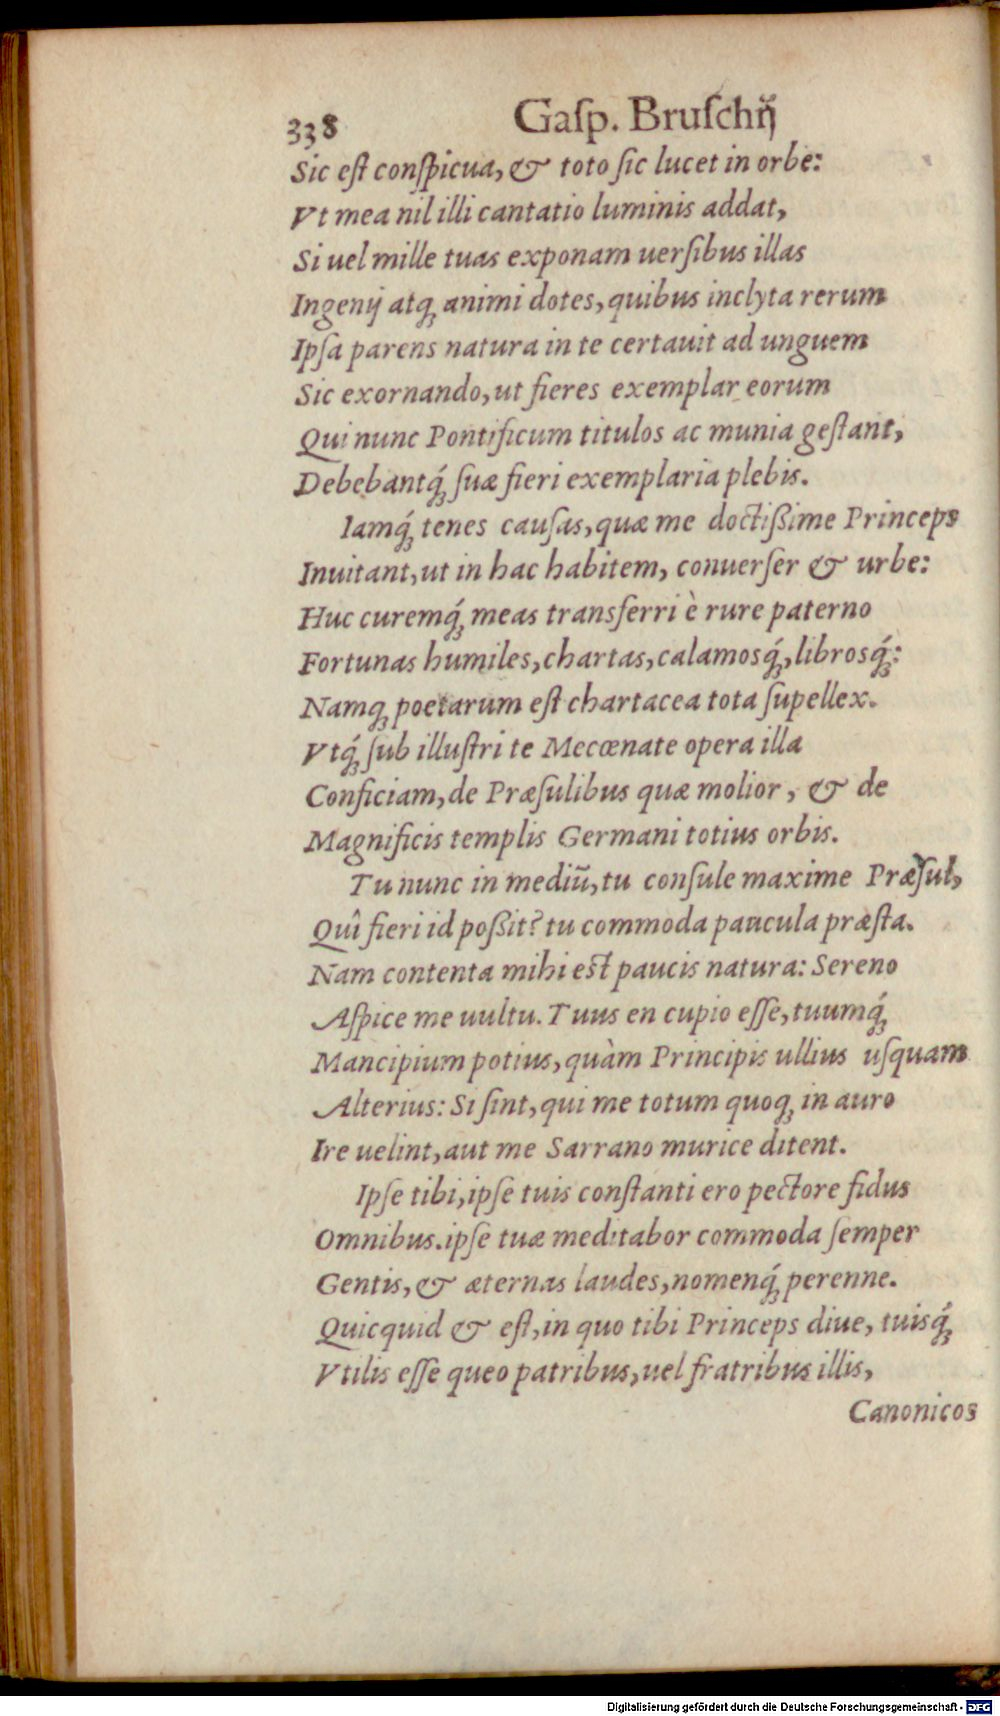 338 Gaſp. Bruſchij
Sic eſt conſpicua, & toto ſic lucet in orbe:
Vt mea nil illi cantatio luminis addat,
Si uel mille tuas exponam uerſibus illas
Ingenij atq́ꝫ animi dotes, quibus inclyta rerum
Ipſa parens natura in te certauit ad unguem
Sic exornando, ut fieres exemplar eorum
Qui nunc Pontificum titulos ac munia geſtant,
Debebantq́ꝫ ſuæ fieri exemplaria plebis.
Iamq́ꝫ tenes cauſas, quæ me doctißime Princeps
Inuitant, ut in hac habitem, conuerſer & urbe:
Huc curemq́ꝫ meas transferri è rure paterno
Fortunas humiles, chartas, calamosq́ꝫ, librosq́ꝫ:
Namqꝫ poetarum eſt chartacea tota ſupellex.
Vtq́ꝫ ſub illuſtri te Mecœnate opera illa
Conficiam, de Præſulibus quæ molior, & de
Magnificis templis Germani totius orbis.
Tu nunc in mediū, tu conſule maxime Præſul,
Quî fieri id poßit? tu commoda paucula præſta.
Nam contenta mihi est paucis natura: Sereno
Aſpice me uultu. Tuus en cupio eſſe, tuumq́ꝫ
Mancipium potius, quàm Principis ullius uſquam
Alterius: Si ſint, qui me totum quoqꝫ in auro
Ire uelint, aut me Sarrano murice ditent.
Ipſe tibi, ipſe tuis conſtanti ero pectore fidus
Omnibus. ipſe tuæ meditabor commoda ſemper
Gentis, & æternas laudes, nomenq́ꝫ perenne.
Quicquid & eſt, in quo tibi Princeps diue, tuisq́ꝫ
Vtilis eſſe queo patribus, uel fratribus illis,
Canonicos
Digitalisierung gefördert durch die Deutsche Forschungsgemeinschaft - DFG